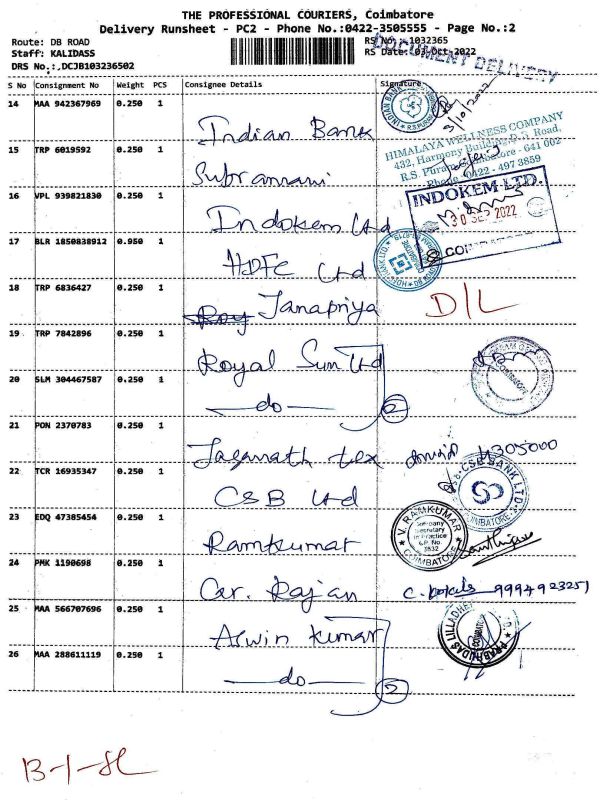 THE PROFESSIONAL COURIERS, Coimbatore
Delivery Runsheet - PC2 - Phone No.:0422-3505555 - Page No.:2
Route: DB ROAD
RS No : 1032365
Staff: KALIDASS
RS Date: 03-Oct-2022
DRS No.:,DCJB103236502
DOCUMENT DELIVERY
S No Consignment No Weight PCS Consignee Details Signature
14 MAA 942367969 0.250 1 Indian Bank
INDIAN BANK
3/10/2022
HIMALAYA WELLNESS COMPANY
432, Harmony Building, D.B. Road,
R.S. Puram, Coimbatore - 641 002
Phone: 0422 - 497 3859
15 TRP 6019592 0.250 1 Subramani
16 VPL 939821830 0.250 1 Indokem Ltd
INDOKEM LTD.
30 SEP 2022
17 BLR 1850838912 0.950 1 HDFC Ltd
18 TRP 6836427 0.250 1 Roy Janapriya D/L
19 TRP 7842896 0.250 1 Royal Sun Ltd
COIMBATORE
20 SLM 304467587 0.250 1 —do— 2
21 PON 2370783 0.250 1 Jaganath tex 4305000
22 TCR 16935347 0.250 1 CSB Ltd
CSB BANK LTD.
COIMBATORE
23 EDQ 47385454 0.250 1 Ramkumar
V. RAMKUMAR
Company
Secretary
in Practice
C.P. No.
3832
COIMBATORE
24 PMK 1190698 0.250 1 Cr. Rajan 9994923251
25 MAA 566707696 0.250 1 Aswin Kumar
PRABHUDAS LILLADHER
26 MAA 288611119 0.250 1 —do— 2
B-1-SL